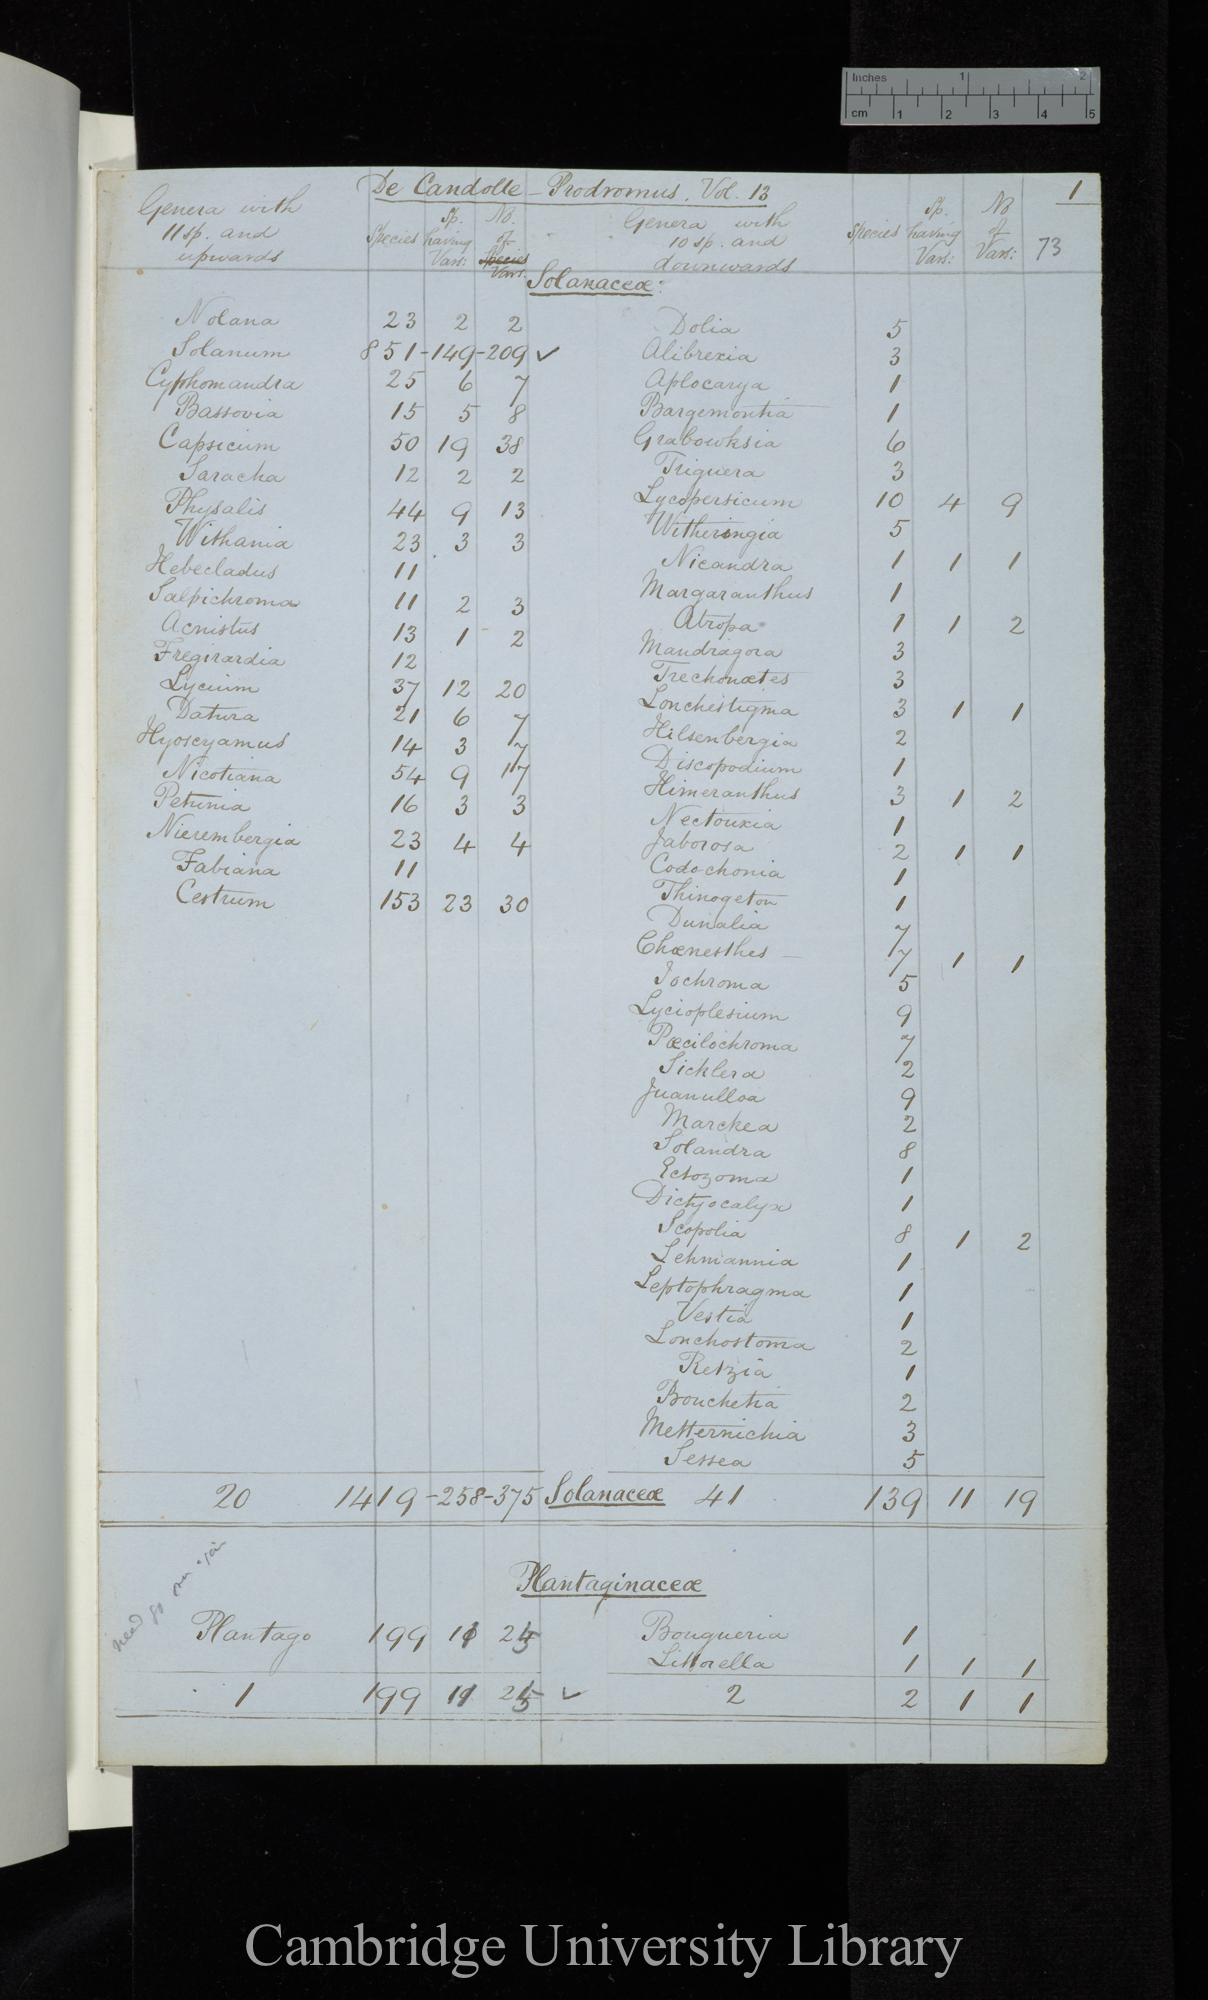 Inches 1 2
cm 1 2 3 4 5
De Candolle – Prodromus. Vol. 13 1
Genera with 11 sp. and upwards Species Sp. having Vars: No. of Species Vars. Genera with 10 sp. and downwards Species Sp. having Vars: No of Vars: 73
Solanaceæ:
Nolana 23 2 2 Dolia 5
Solanum 851-149-209 ✓ Alibrexia 3
Cyphomandra 25 6 7 Aplocarya 1
Bassovia 15 5 8 Bargemontia 1
Capsicum 50 19 38 Grabowksia 6
Saracha 12 2 2 Triguera 3
Physalis 44 9 13 Lycopersicum 10 4 9
Withania 23 3 3 Witheringia 5
Hebecladus 11 Nicandra 1 1 1
Salpichroma 11 2 3 Margaranthus 1
Acnistus 13 1 2 Atropa 1 1 2
Fregirardia 12 Mandragora 3
Lycium 37 12 20 Trechonætes 3
Datura 21 6 7 Lonchestigma 3 1 1
Hyoscyamus 14 3 7 Hilsenbergia 2
Nicotiana 54 9 17 Discopodium 1
Petunia 16 3 3 Himeranthus 3 1 2
Nierembergia 23 4 4 Nectouxia 1
Fabiana 11 Jaborosa 2 1 1
Cestrum 153 23 30 Codochonia 1
Thinogeton 1
Dunalia 7
Chænesthes – 7 1 1
Jochroma 5
Lycioplesium 9
Pœcilochroma 7
Sicklera 2
Juanulloa 9
Marckea 2
Solandra 8
Ectozoma 1
Dictyocalyx 1
Scopolia 8 1 2
Lehmannia 1
Leptophragma 1
Vestia 1
Lonchostoma 2
Retzia 1
Bouchetia 2
Metternichia 3
Sessea 5
20 1419-258-375 Solanaceæ 41 139 11 19
Plantaginaceæ
Plantago 199 11 25 Bougueria 1
Littorella 1 1 1
1 199 11 25 ✓ 2 2 1 1
Cambridge University Library